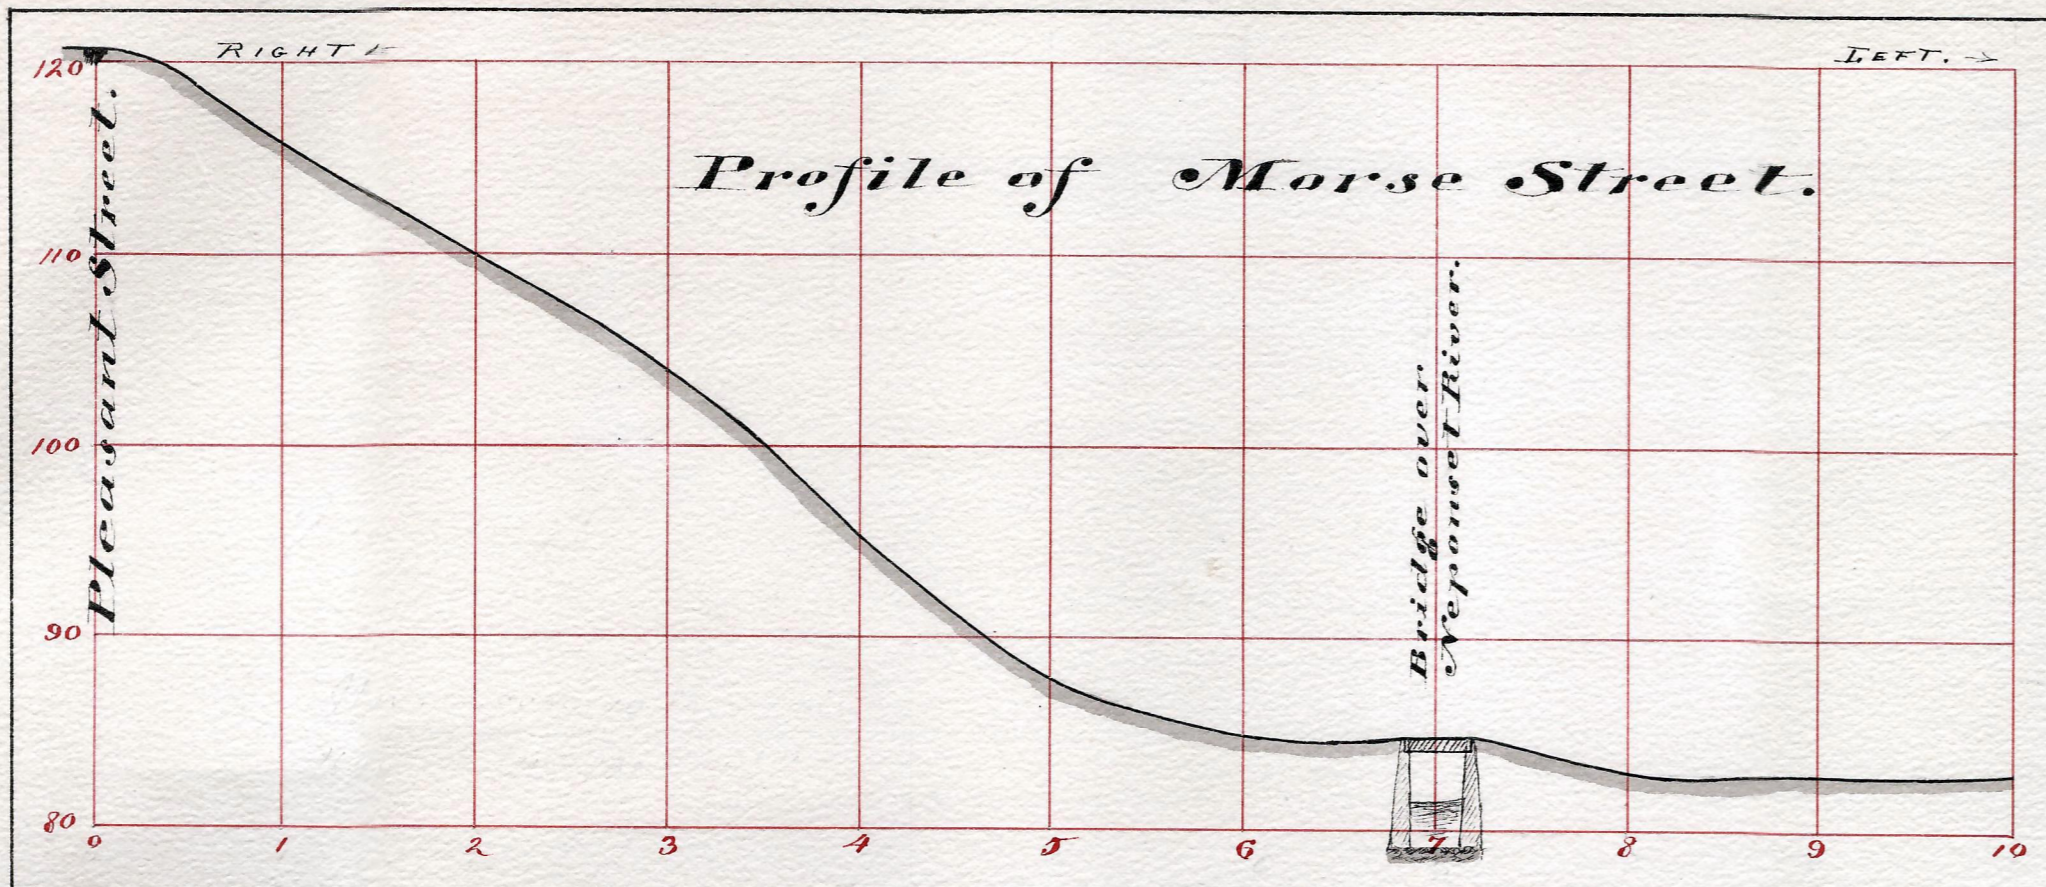 RIGHT
LEFT.
120
Profile of Morse Street.
Pleasant Street.
110
Bridge over
Neponset River.
100
90
80
0 1 2 3 4 5 6 7 8 9 10